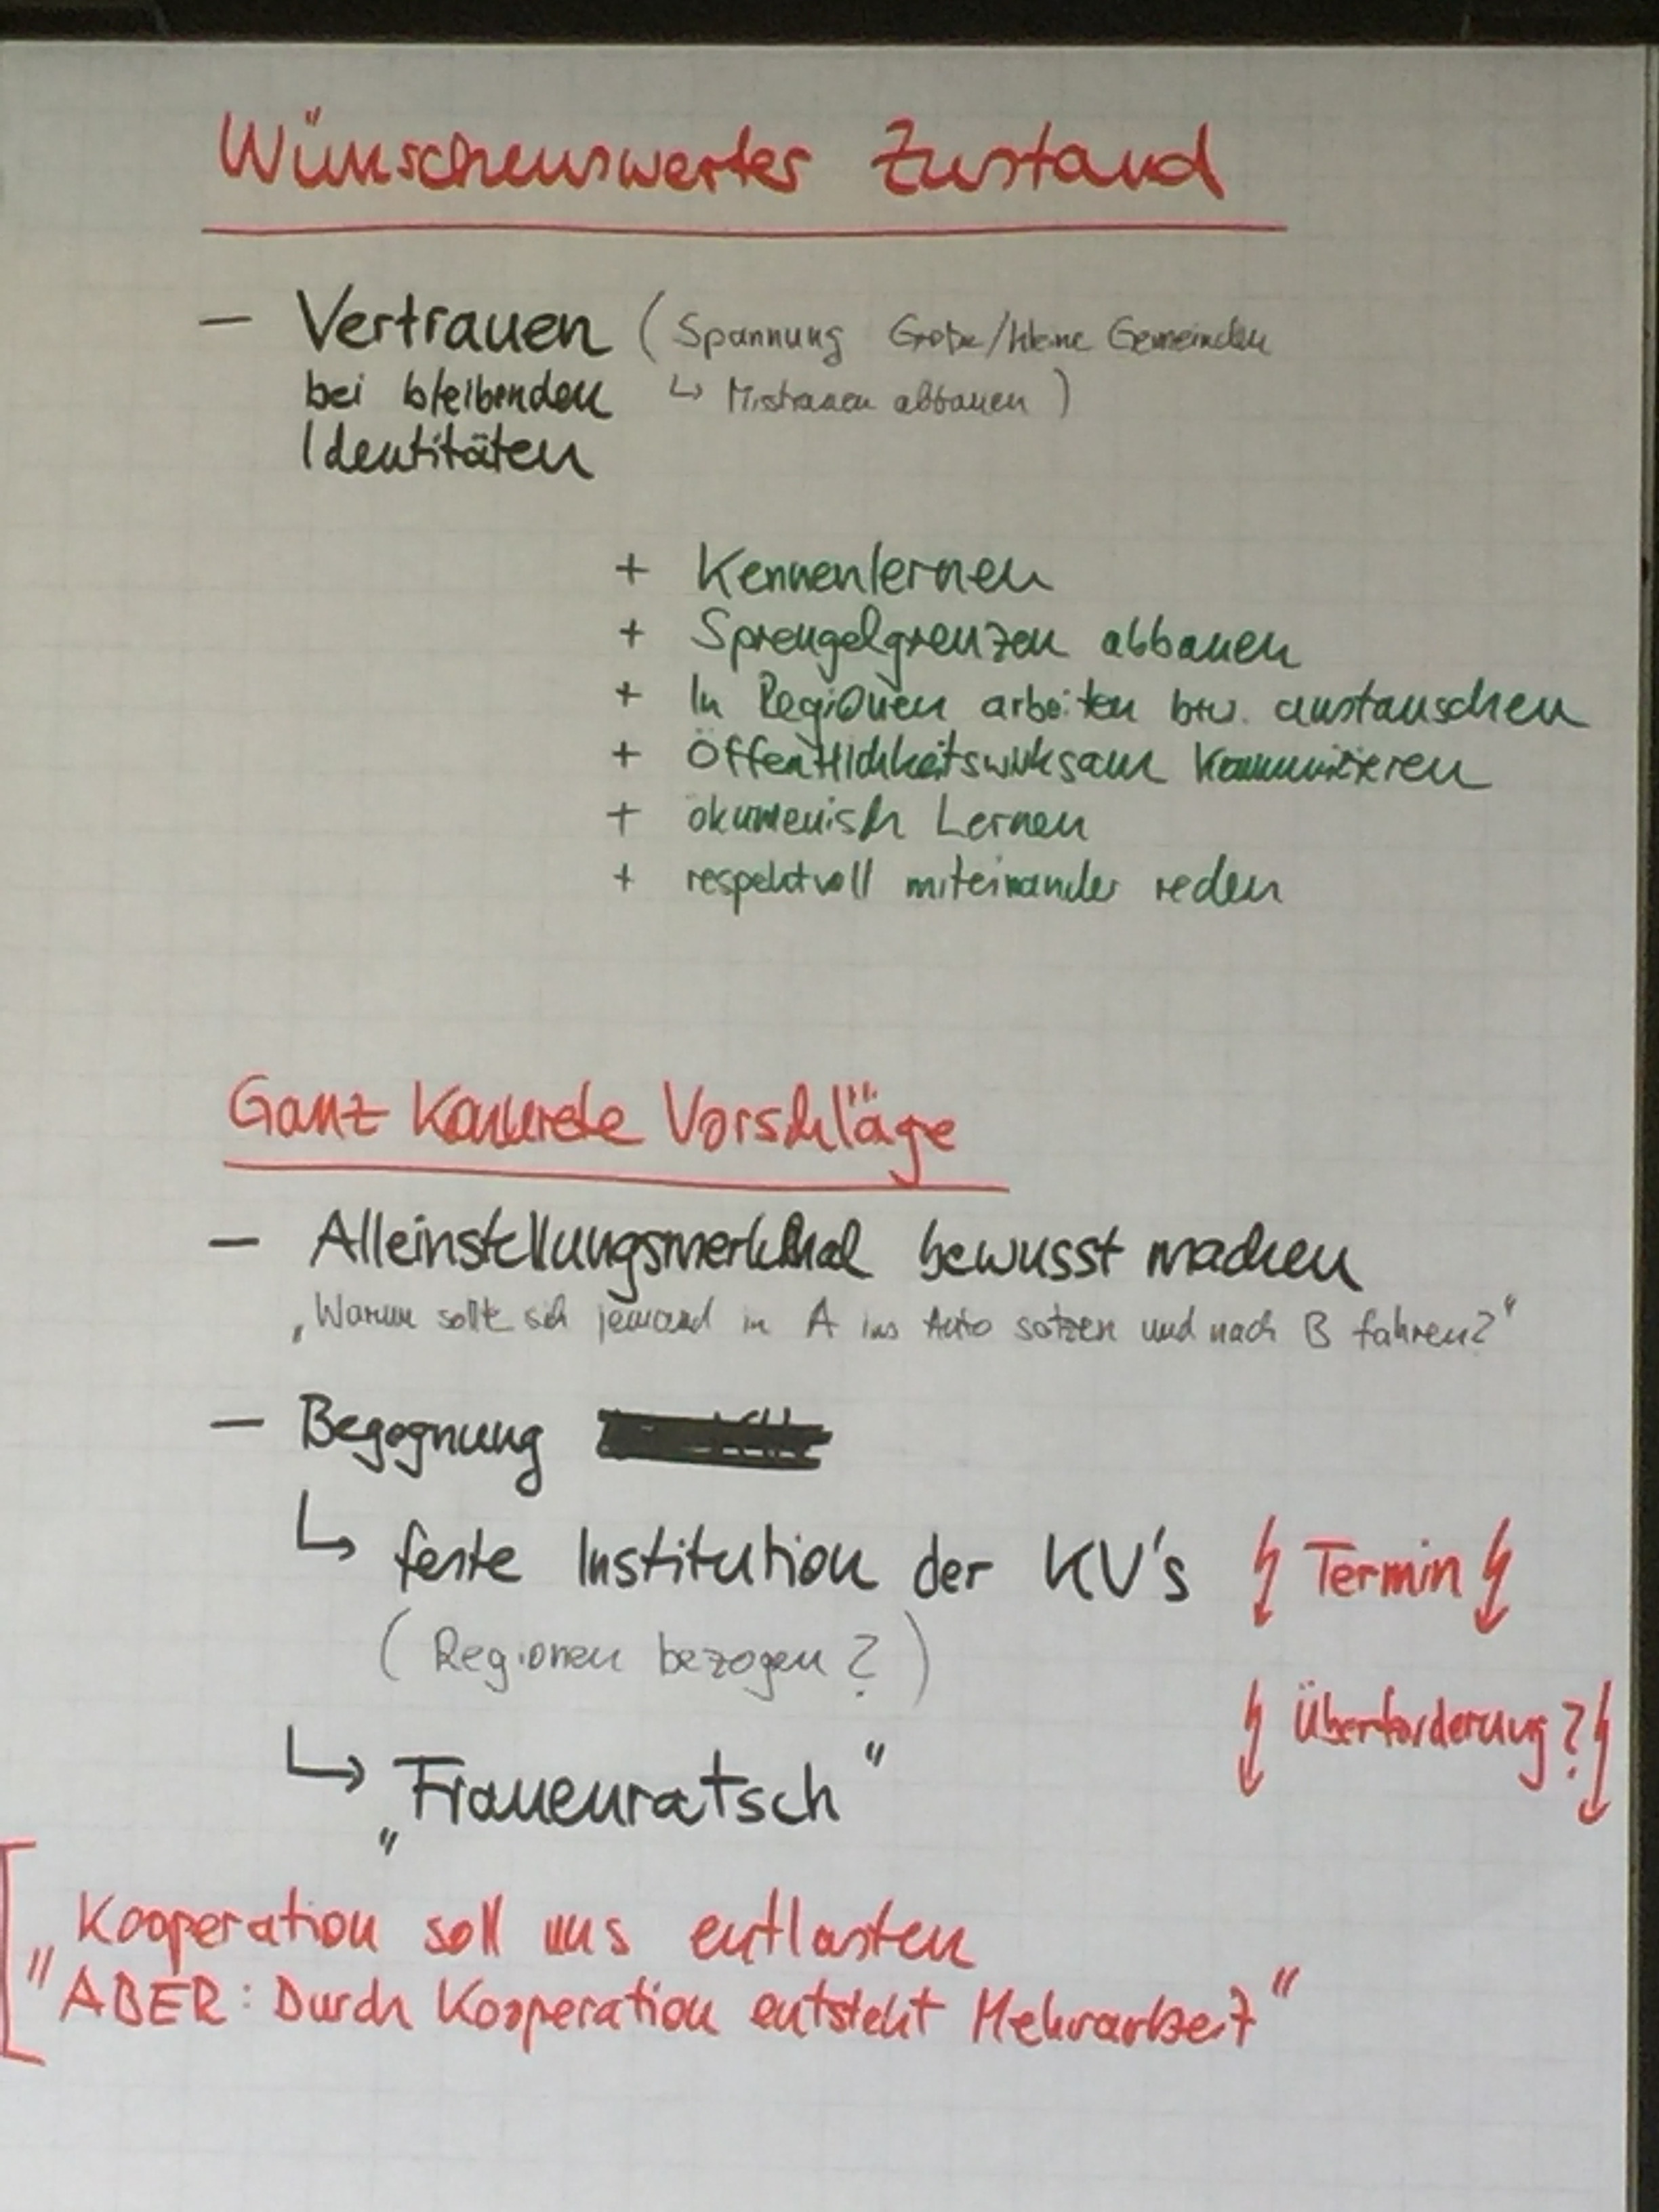 Wünschenswerter Zustand
– Vertrauen (Spannung Große/kleine Gemeinden
bei bleibenden ↳ Misstrauen abbauen)
Identitäten
+ Kennenlernen
+ Sprengelgrenzen abbauen
+ In Regionen arbeiten bzw. austauschen
+ Öffentlichkeitswirksam kommunizieren
+ ökumenisch Lernen
+ respektvoll miteinander reden
Ganz konkrete Vorschläge
– Alleinstellungsmerkmal bewusst machen
„Warum sollte sich jemand in A ins Auto setzen und nach B fahren?"
– Begegnung
↳ feste Institution der KV's Termin
(Regionen bezogen?)
Überforderung?
↳ „Frauenratsch"
Kooperation soll uns entlasten
"ABER: Durch Kooperation entsteht Mehrarbeit"